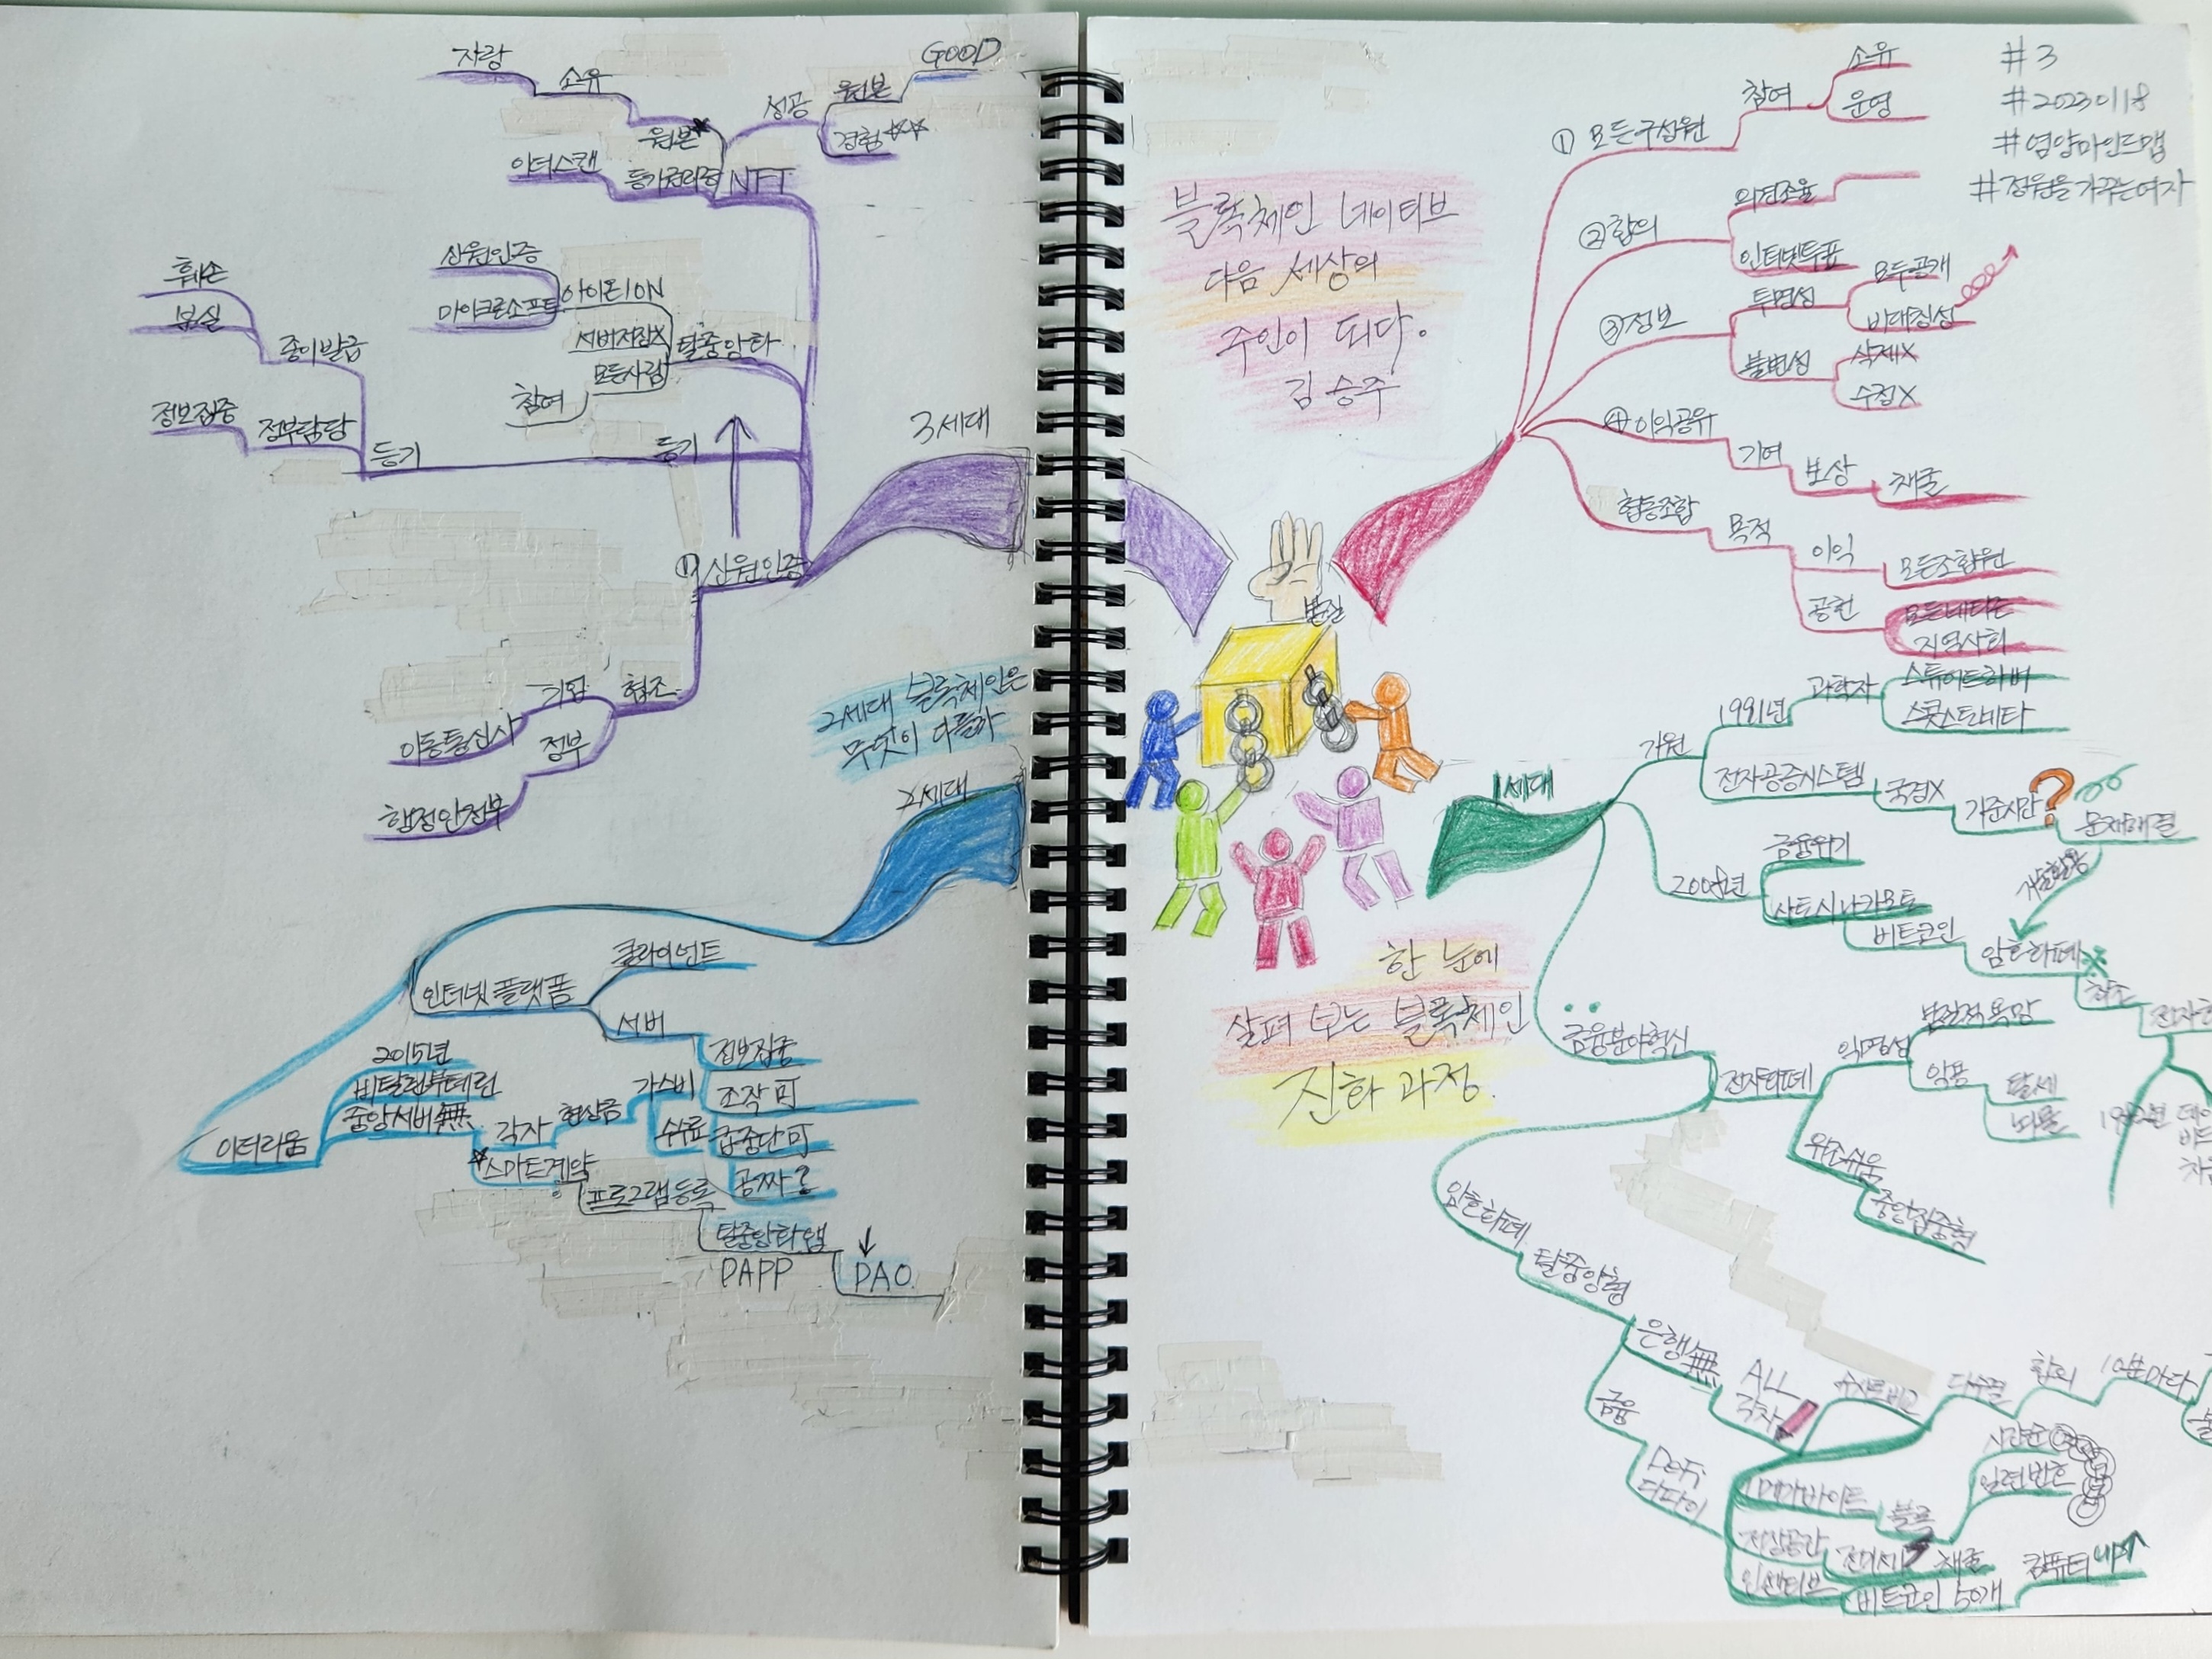 자랑
소유
원본
성공
원본
GOOD
경험
이더스캔
등기권리증
NFT
신원인증
마이크로소프트
아이온ION
서버저장X
모든사람
참여
탈중앙화
훼손
분실
종이발급
정보집중
정부담당
등기
등기
3세대
① 신원인증
협조
기업
이동통신사
정부
행정안전부
2세대 블록체인은
무엇이 다를까
2세대
인터넷 플랫폼
클라이언트
서버
정보집중
조작 可
급중단 可
공짜?
이더리움
2015년
비탈릭부테린
중앙서버無
각자
현상금
가스비
수수료
스마트계약
프로그램등록
탈중앙화앱
DAPP
DAO
블록체인 네이티브
다음 세상의
주인이 되다.
김승주
#3
#20230118
#영양마인드맵
#정원을가꾸는여자
① 모든구성원
참여
소유
운영
② 합의
의견조율
인터넷투표
③ 정보
투명성
모두공개
비대칭성
불변성
삭제X
수정X
④ 이익공유
기여
보상
채굴
협동조합
목적
이익
모든조합원
공헌
지역사회
1세대
기원
1991년
과학자
스튜어트하버
스콧스토네타
전자공증시스템
국경X
기준시간
?
문제해결
기술활용
2008년
금융위기
사토시나카모토
비트코인
암호화폐
최초
한 눈에
살펴 보는 블록체인
진화 과정.
금융분야혁신
전자화폐
익명성
악용
탈세
뇌물
위조쉬움
중앙집중형
암호화폐
탈중앙형
은행無
ALL
각자
다수결
합의
10분마다
금융
DeFi
디파이
1메가바이트
블록
시간순
일련번호
저장공간
채굴
인센티브
비트코인 50개
컴퓨터 up